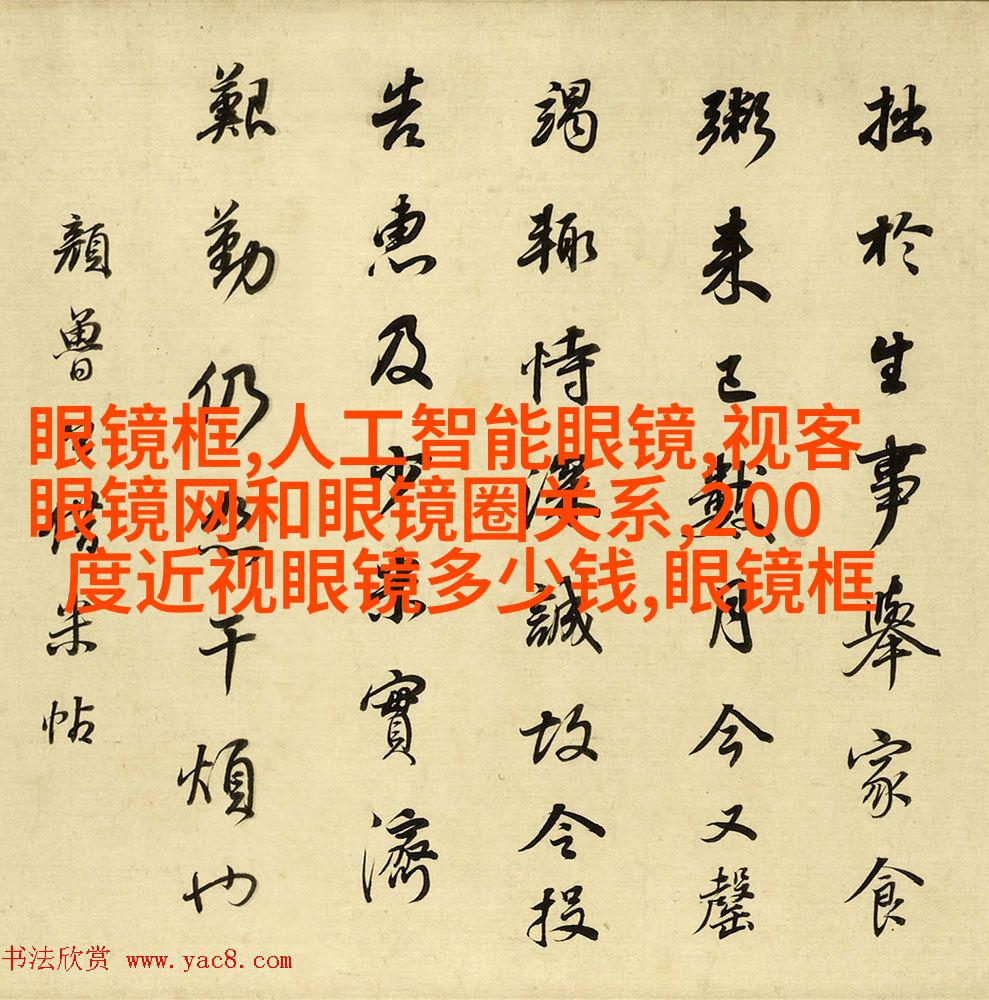 拙於生事舉家食
粥来已數月今又罄
竭輙恃深誠故令投
告惠及少實濟
艱勤仍恕干煩也
顏魯公借米帖
眼镜框,人工智能眼镜,视客
眼镜网和眼镜圈关系,200
度近视眼镜多少钱,眼镜框
书法欣赏 www.yac8.com